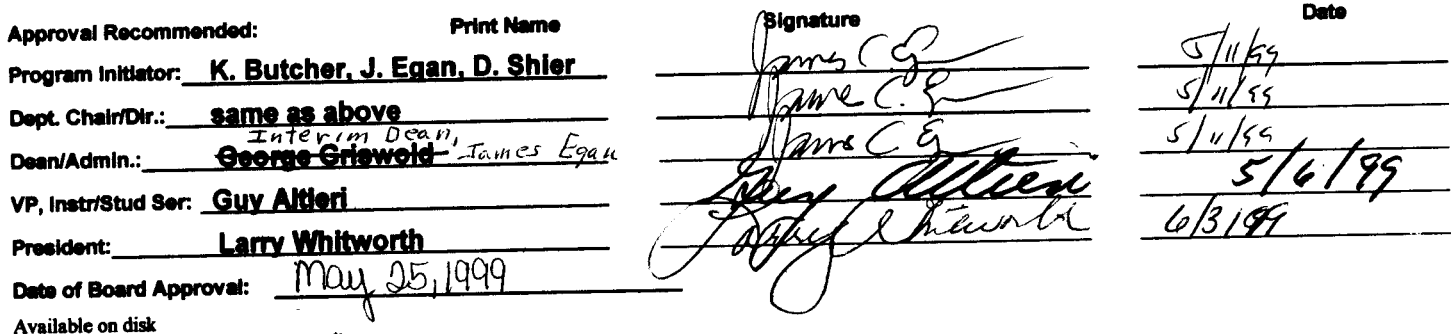 Approval Recommended: Print Name Signature Date
Program Initiator: K. Butcher, J. Egan, D. Shier James C. Eg 5/11/99
Dept. Chair/Dir.: same as above James C. E 5/11/99
Interim Dean,
Dean/Admin.: George Griswold James Egan James C. Eg 5/11/99
VP, Instr/Stud Ser: Guy Altieri Guy Altieri 5/6/99
President: Larry Whitworth Larry Whitworth 6/3/99
Date of Board Approval: May 25, 1999
Available on disk